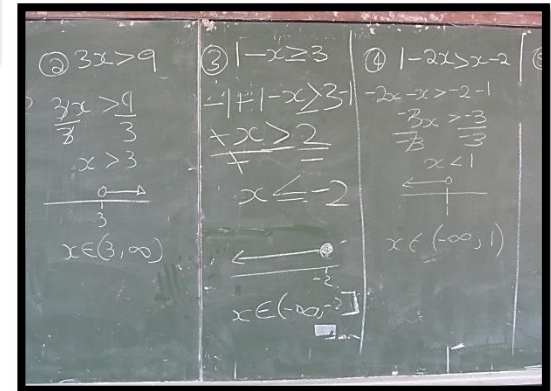 ② 3x>9
3x > 9
3 3
x > 3
3
x∈(3,∞)
③ 1-x≥3
-1+1-x≥3-1
-x ≥ 2
- -
x ≤ -2
-2
x∈(-∞,-2]
④ 1-2x>x-2
-2x-x>-2-1
-3x > -3
-3 -3
x<1
x∈(-∞,1)